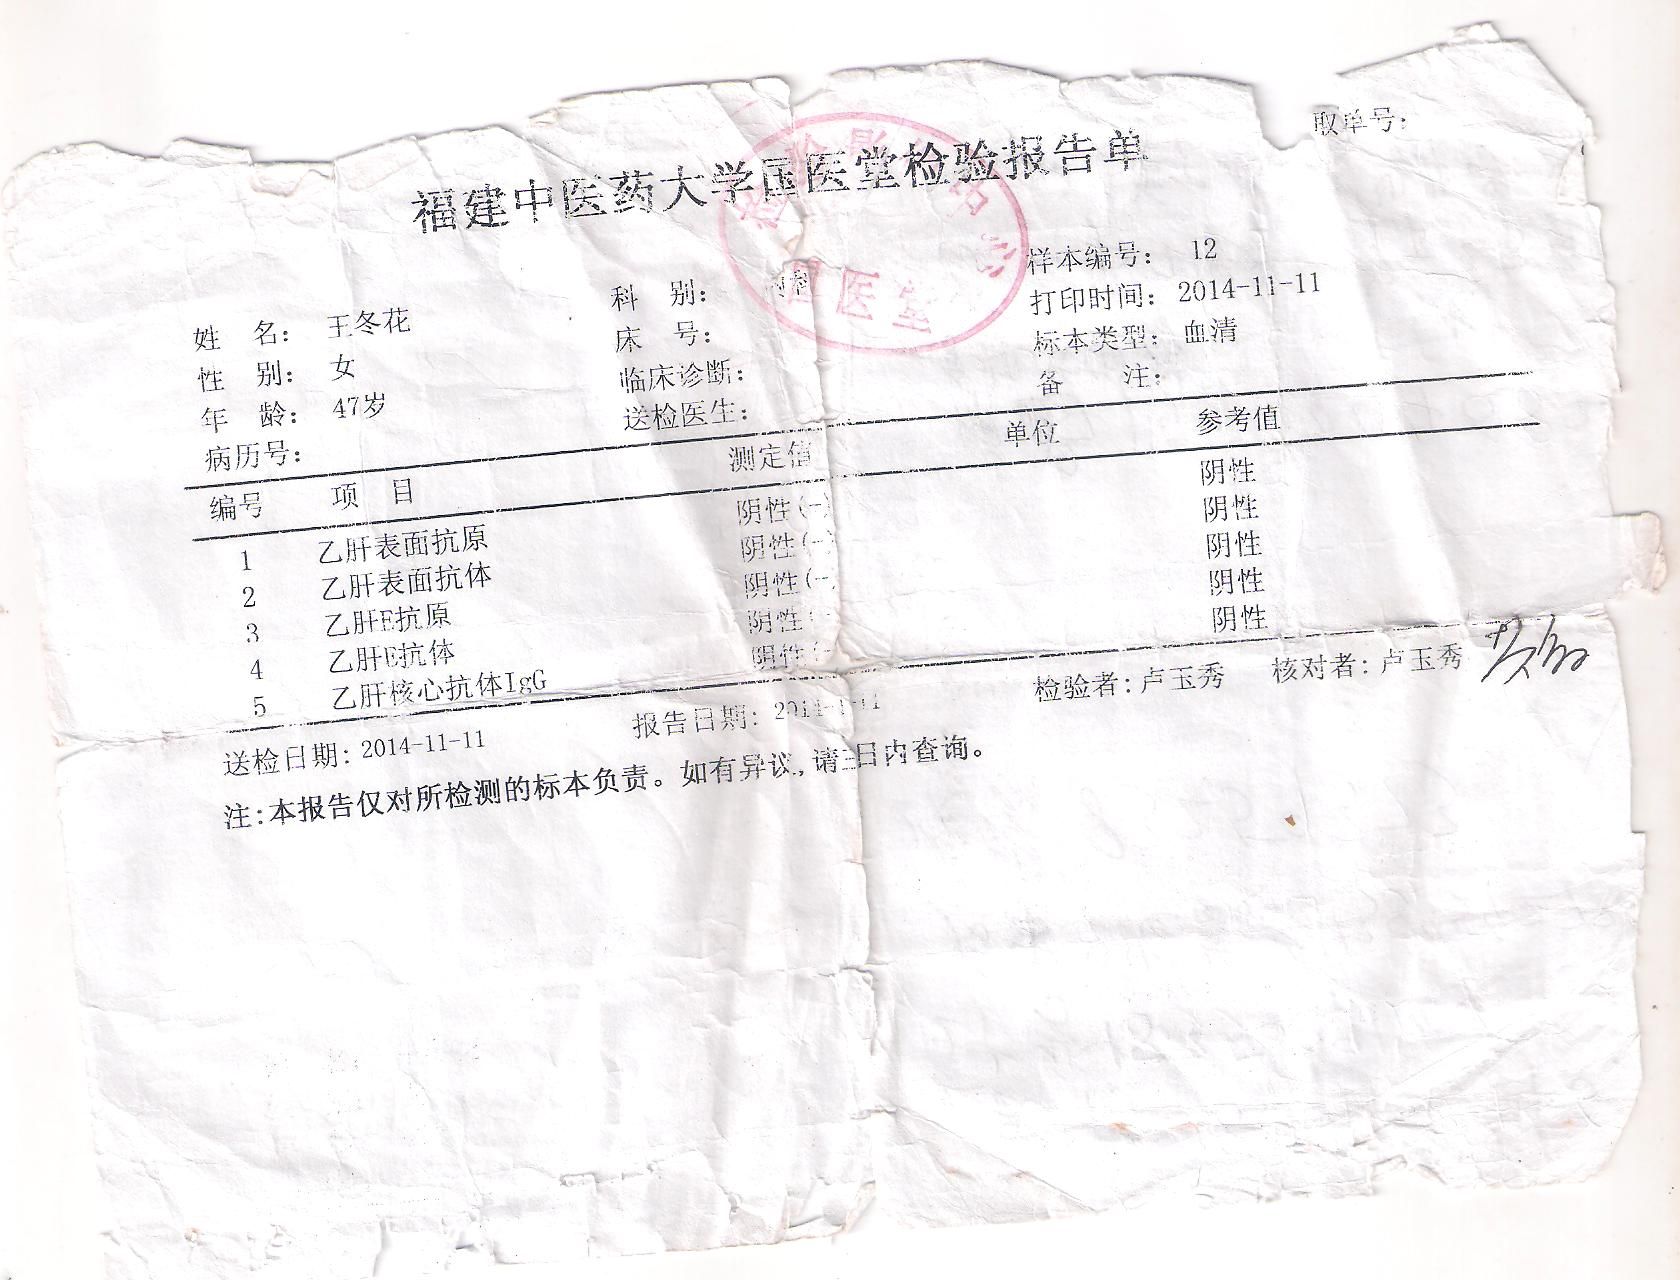 取单号:
福建中医药大学国医堂检验报告单
国医堂
姓 名: 王冬花 科 别: 样本编号: 12
性 别: 女 床 号: 打印时间: 2014-11-11
年 龄: 47岁 临床诊断: 标本类型: 血清
病历号: 送检医生: 备 注:
编号 项 目 测定值 单位 参考值
1 乙肝表面抗原 阴性(-) 阴性
2 乙肝表面抗体 阴性(-) 阴性
3 乙肝E抗原 阴性(- 阴性
4 乙肝E抗体 阴性(- 阴性
5 乙肝核心抗体IgG 阴性(- 阴性
送检日期: 2014-11-11 报告日期: 检验者: 卢玉秀 核对者: 卢玉秀
注:本报告仅对所检测的标本负责。如有异议,请三日内查询。